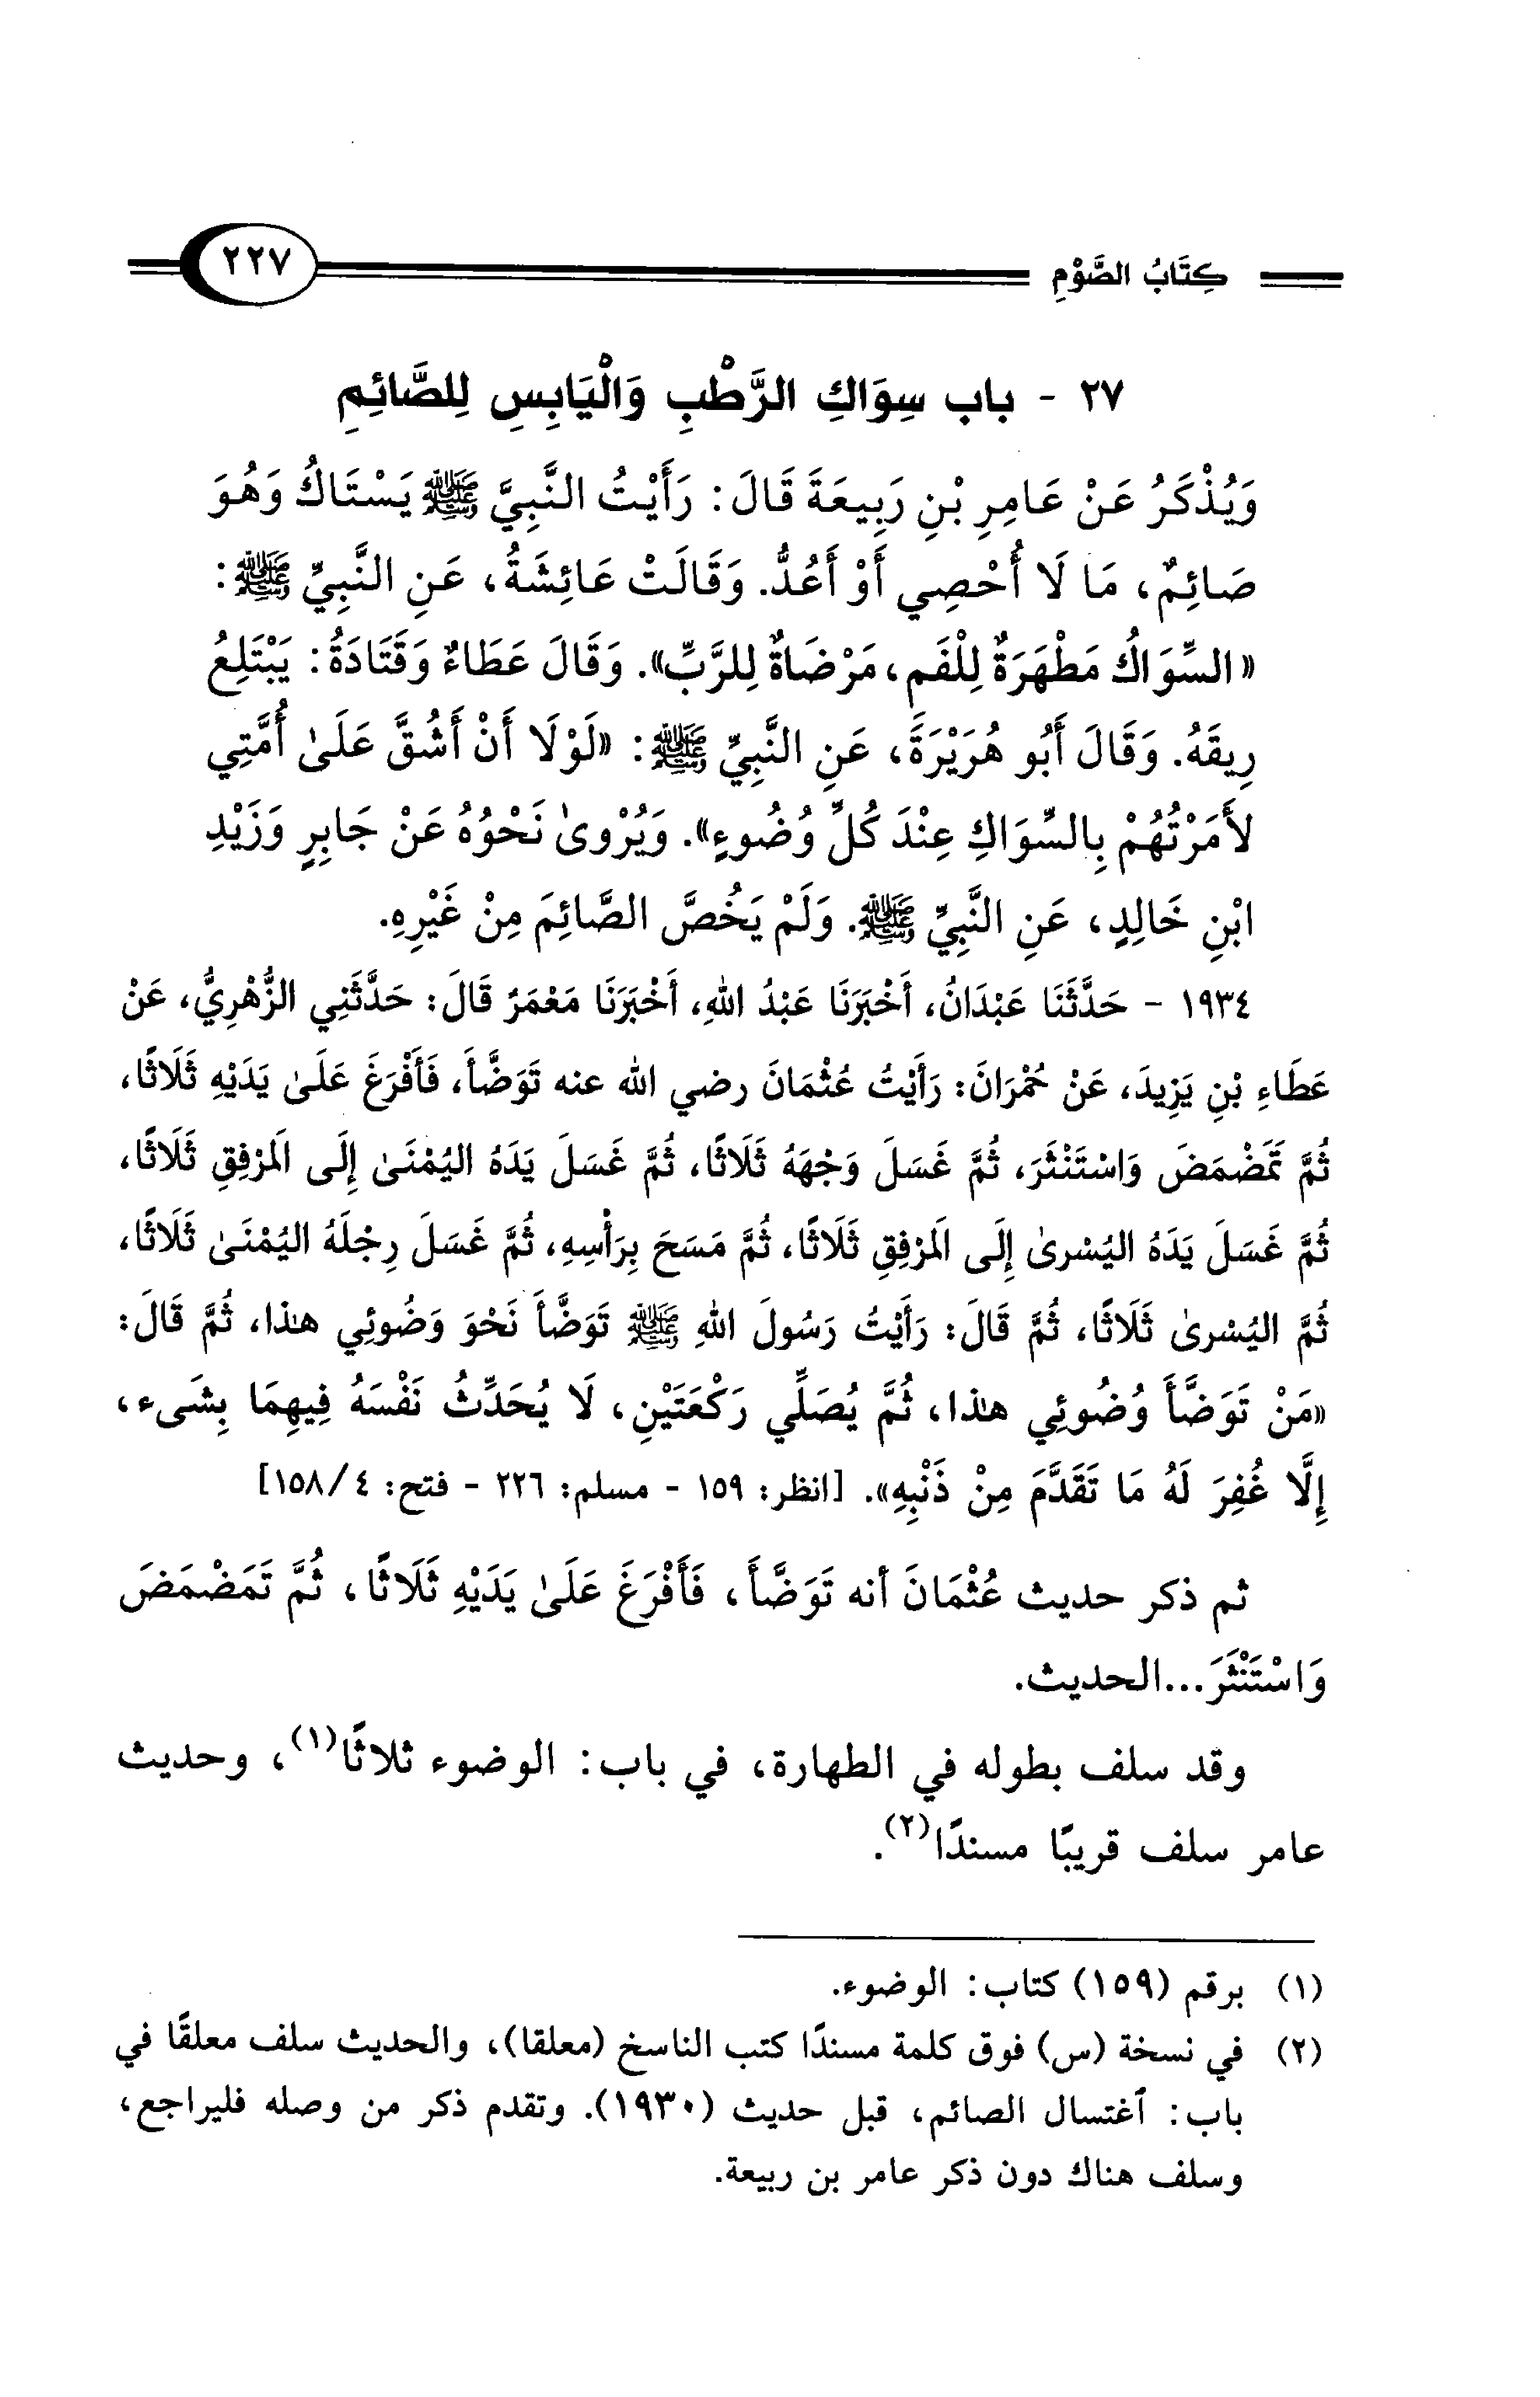 كِتَابُ الصَّوْمِ ٢٢٧
٢٧ - باب سِوَاكِ الرَّطْبِ وَالْيَابِسِ لِلصَّائِمِ
وَيُذْكَرُ عَنْ عَامِرِ بْنِ رَبِيعَةَ قَالَ: رَأَيْتُ النَّبِيَّ ﷺ يَسْتَاكُ وَهُوَ
صَائِمٌ، مَا لَا أُحْصِي أَوْ أَعُدُّ. وَقَالَتْ عَائِشَةُ، عَنِ النَّبِيِّ ﷺ:
«السِّوَاكُ مَطْهَرَةٌ لِلْفَمِ، مَرْضَاةٌ لِلرَّبِّ». وَقَالَ عَطَاءٌ وَقَتَادَةُ: يَبْتَلِعُ
رِيقَهُ. وَقَالَ أَبُو هُرَيْرَةَ، عَنِ النَّبِيِّ ﷺ: «لَوْلَا أَنْ أَشُقَّ عَلَىٰ أُمَّتِي
لأَمَرْتُهُمْ بِالسِّوَاكِ عِنْدَ كُلِّ وُضُوءٍ». وَيُرْوىٰ نَحْوُهُ عَنْ جَابِرٍ وَزَيْدِ
ابْنِ خَالِدٍ، عَنِ النَّبِيِّ ﷺ. وَلَمْ يَخُصَّ الصَّائِمَ مِنْ غَيْرِهِ.
١٩٣٤ - حَدَّثَنَا عَبْدَانُ، أَخْبَرَنَا عَبْدُ اللهِ، أَخْبَرَنَا مَعْمَرٌ قَالَ: حَدَّثَنِي الزُّهْرِيُّ، عَنْ
عَطَاءِ بْنِ يَزِيدَ، عَنْ حُمْرَانَ: رَأَيْتُ عُثْمَانَ رضي الله عنه تَوَضَّأَ، فَأَفْرَغَ عَلَىٰ يَدَيْهِ ثَلَاثًا،
ثُمَّ تَمَضْمَضَ وَاسْتَنْثَرَ، ثُمَّ غَسَلَ وَجْهَهُ ثَلَاثًا، ثُمَّ غَسَلَ يَدَهُ اليُمْنَىٰ إِلَى المَرْفِقِ ثَلَاثًا،
ثُمَّ غَسَلَ يَدَهُ اليُسْرىٰ إِلَى المَرْفِقِ ثَلَاثًا، ثُمَّ مَسَحَ بِرَأْسِهِ، ثُمَّ غَسَلَ رِجْلَهُ اليُمْنَىٰ ثَلَاثًا،
ثُمَّ اليُسْرىٰ ثَلَاثًا، ثُمَّ قَالَ: رَأَيْتُ رَسُولَ اللهِ ﷺ تَوَضَّأَ نَحْوَ وَضُوئِي هذا، ثُمَّ قَالَ:
«مَنْ تَوَضَّأَ وُضُوئِي هذا، ثُمَّ يُصَلِّي رَكْعَتَيْنِ، لَا يُحَدِّثُ نَفْسَهُ فِيهِمَا بِشَىء،
إِلَّا غُفِرَ لَهُ مَا تَقَدَّمَ مِنْ ذَنْبِهِ». [انظر: ١٥٩ - مسلم: ٢٢٦ - فتح: ٤/ ١٥٨]
ثم ذكر حديث عُثْمَانَ أنه تَوَضَّأَ، فَأَفْرَغَ عَلَىٰ يَدَيْهِ ثَلَاثًا، ثُمَّ تَمَضْمَضَ
وَاسْتَنْثَرَ...الحديث.
وقد سلف بطوله في الطهارة، في باب: الوضوء ثلاثًا(١)، وحديث
عامر سلف قريبًا مسندًا(٢).
(١) برقم (١٥٩) كتاب: الوضوء.
(٢) في نسخة (س) فوق كلمة مسندًا كتب الناسخ (معلقا)، والحديث سلف معلقًا في
باب: ٱغتسال الصائم، قبل حديث (١٩٣٠). وتقدم ذكر من وصله فليراجع،
وسلف هناك دون ذكر عامر بن ربيعة.